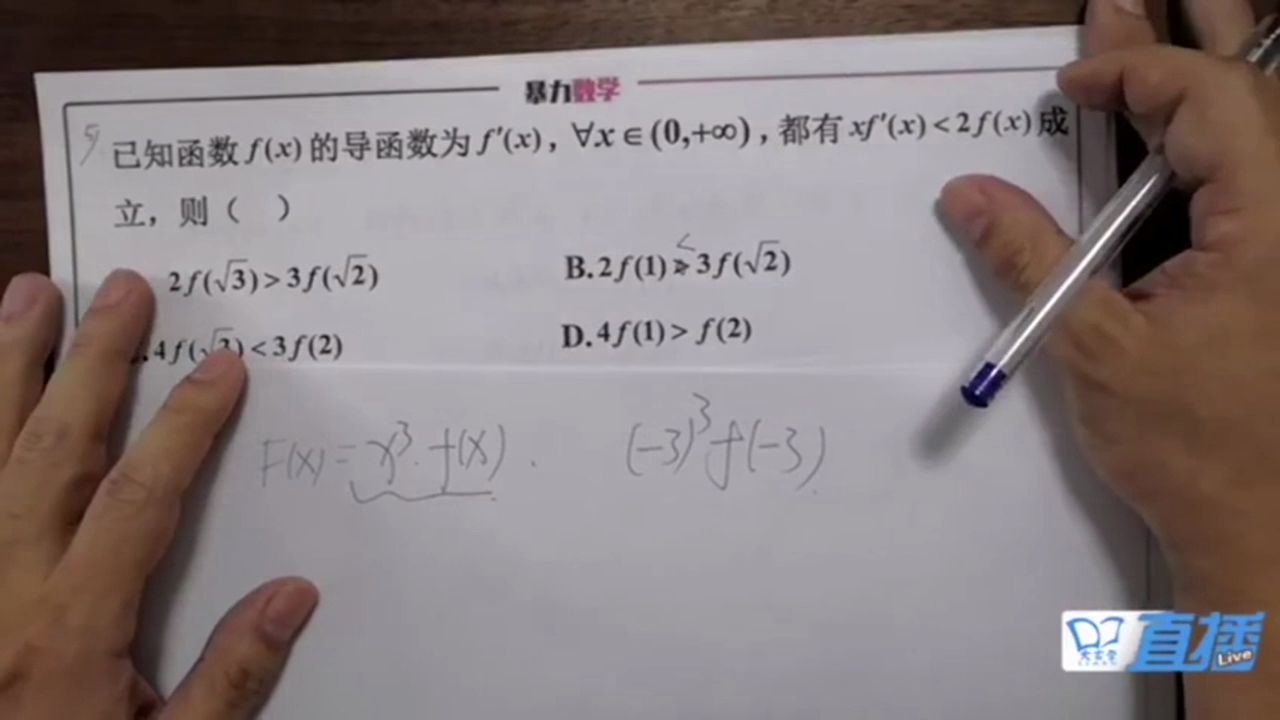 暴力数学
5
已知函数 f(x) 的导函数为 f′(x), ∀x∈(0,+∞), 都有 xf′(x)<2f(x) 成
立, 则 ( )
2f(√3)>3f(√2)
<
B. 2f(1)>3f(√2)
.4f(√3)<3f(2)
D. 4f(1)>f(2)
F(x)=x³·f(x). (-3)³f(-3)
直播
Live